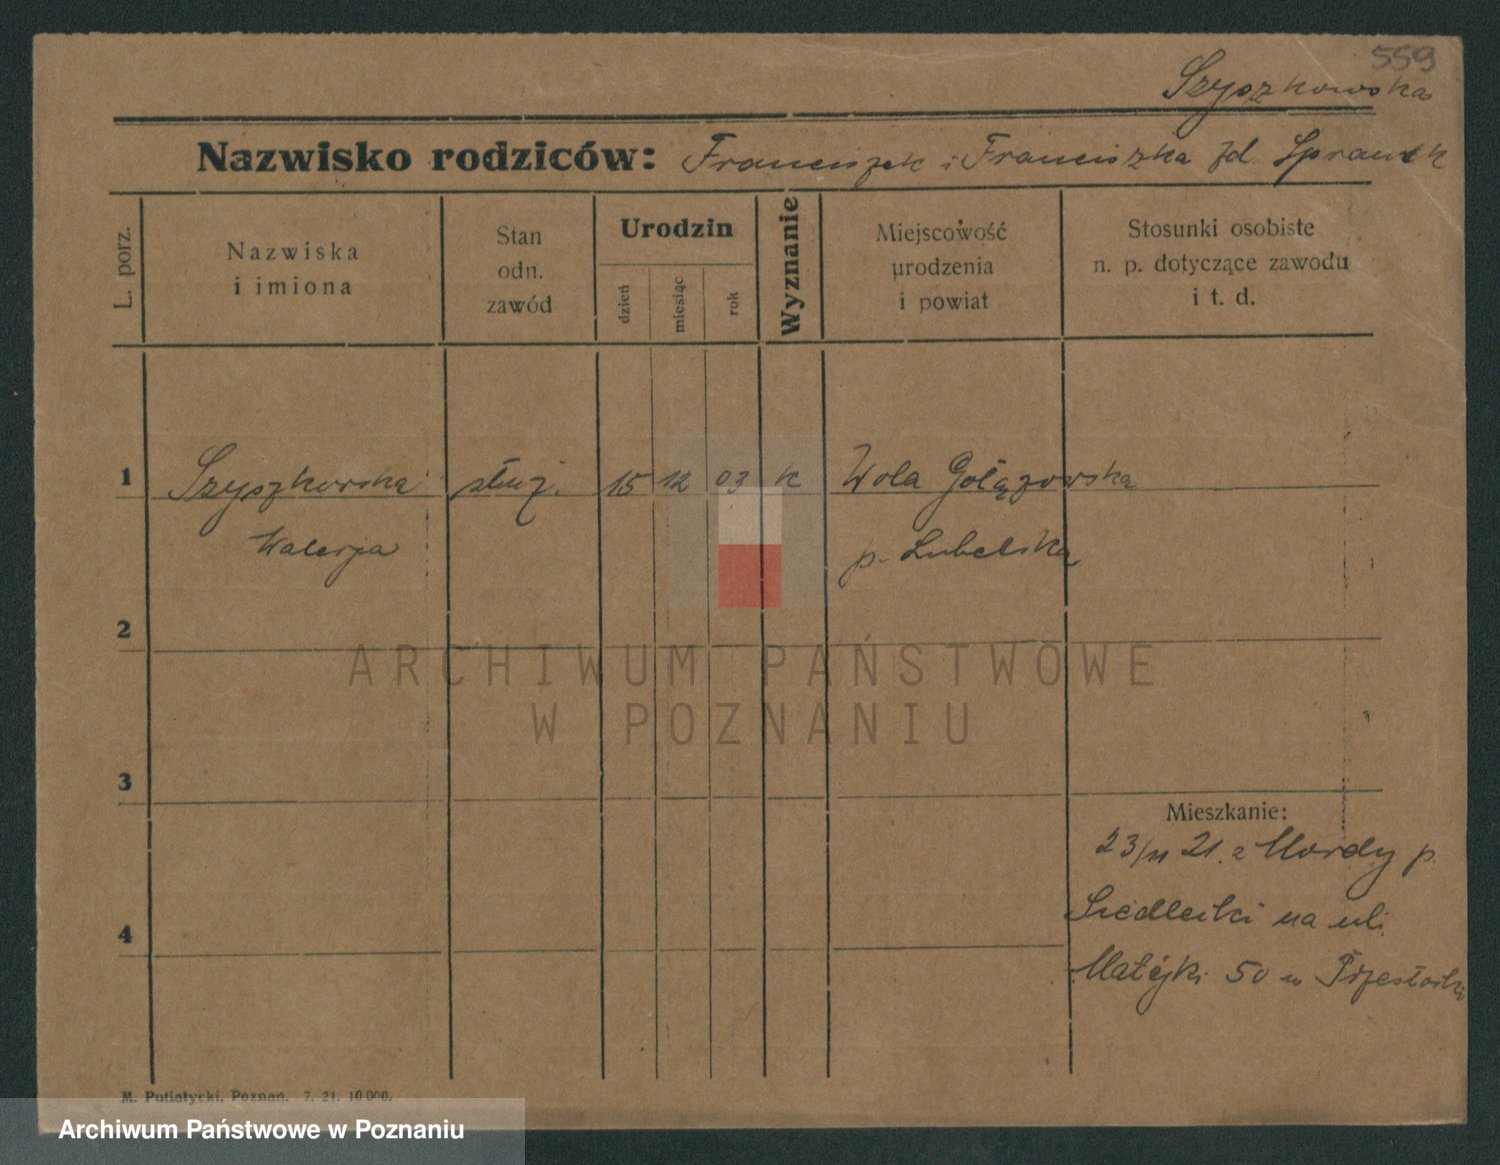 559
Szyszkowska
Nazwisko rodziców: Franciszek i Franciszka zd. Sprawek
L. porz.
Nazwiska
i imiona
Stan
odn.
zawód
Urodzin
dzień
miesiąc
rok
Wyznanie
Miejscowość
urodzenia
i powiat
Stosunki osobiste
n. p. dotyczące zawodu
i t. d.
1 Szyszkowska służ. 15 12 03 k Wola Gołązowska
Walerja p. Lubelska
2
ARCHIWUM PAŃSTWOWE
W POZNANIU
3
Mieszkanie:
23/11 21. z Mordy p.
Siedlecki na ul.
4
Matejki 50 u
M. Putiatycki, Poznań. 7. 21. 10 000.
Archiwum Państwowe w Poznaniu